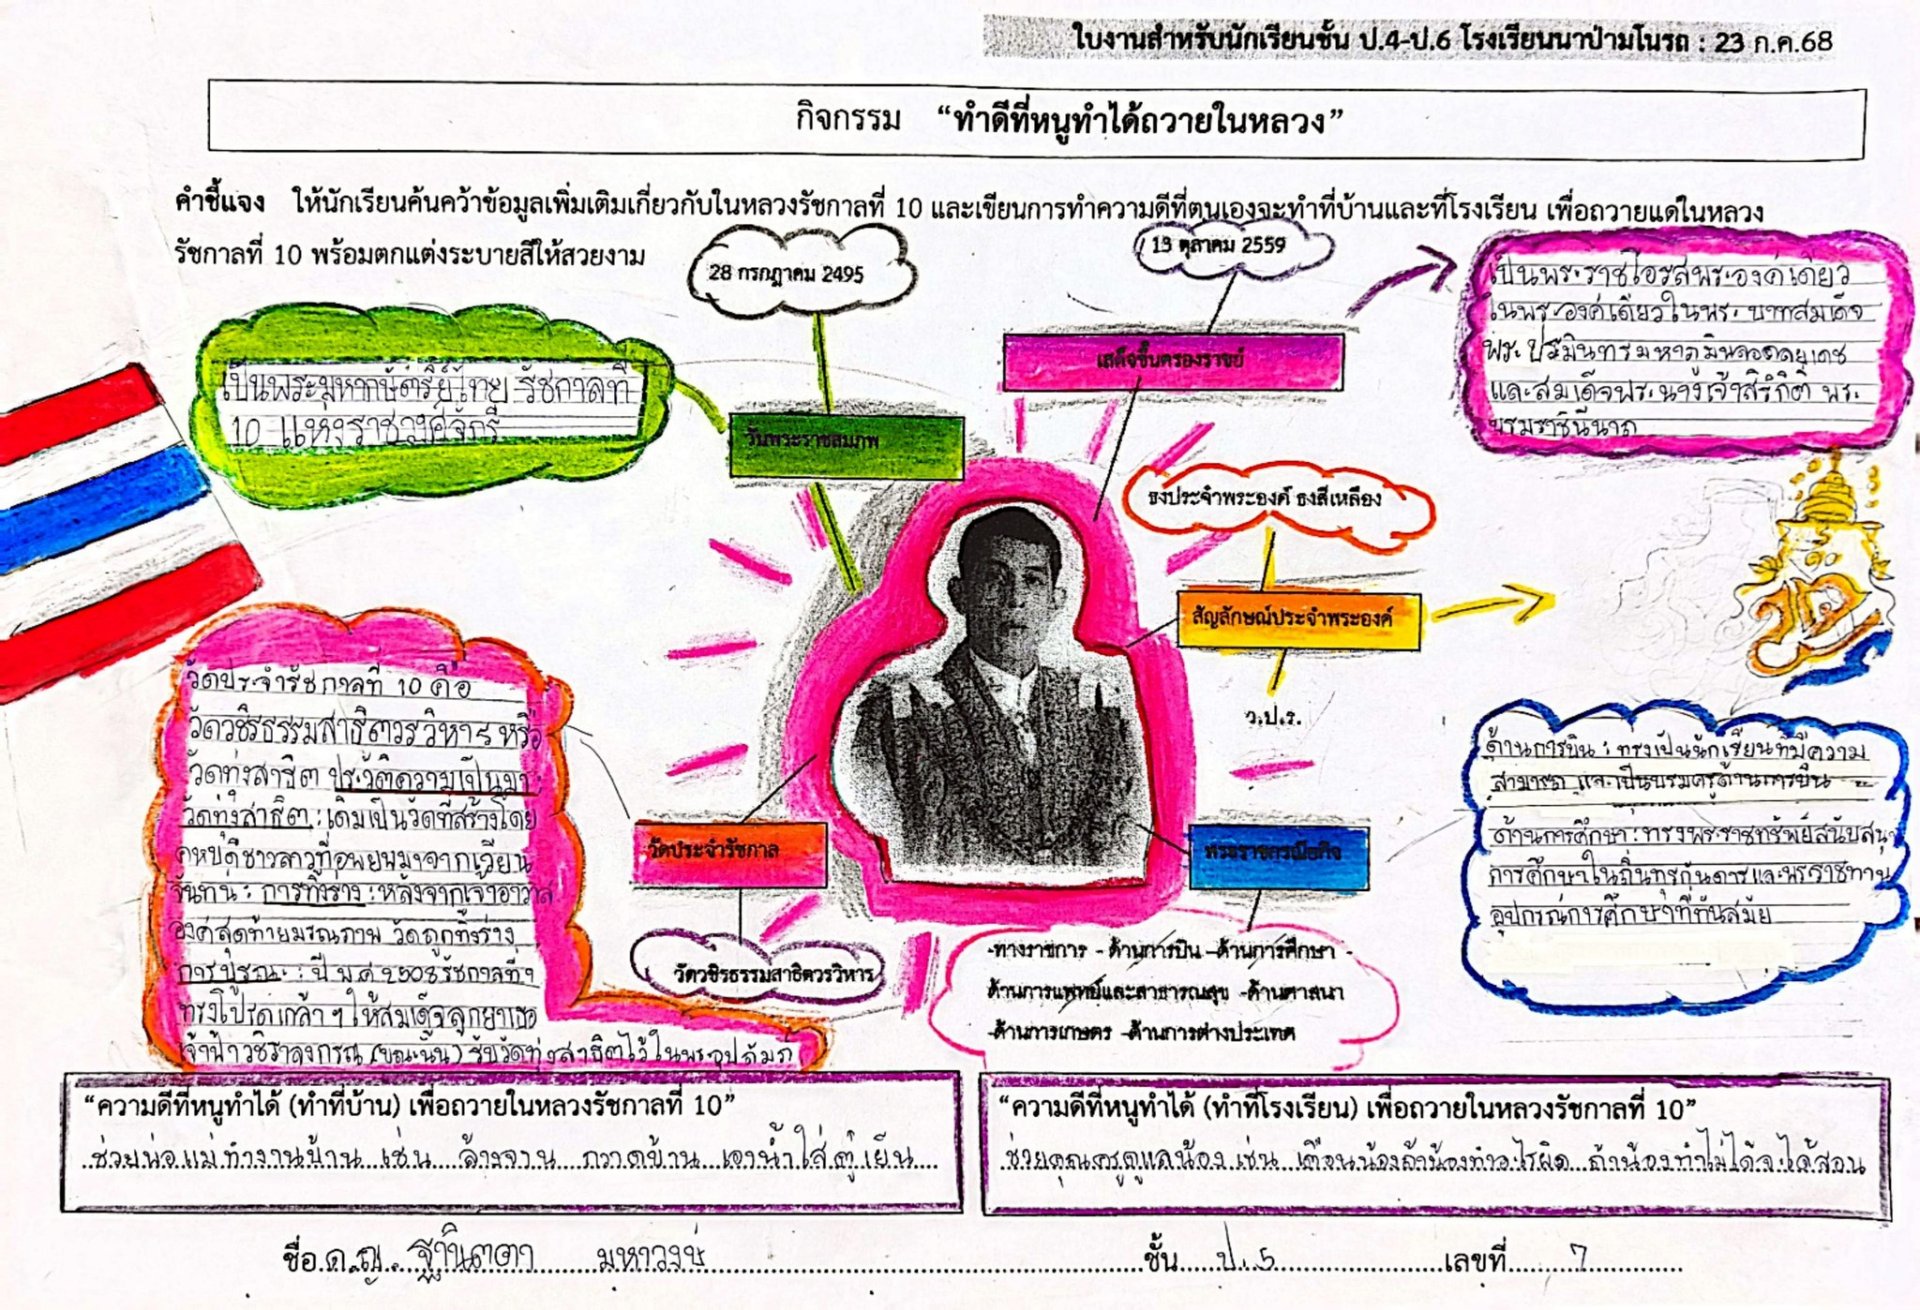 ใบงานสำหรับนักเรียนชั้น ป.4-ป.6 โรงเรียนนาป่ามโนรถ : 23 ก.ค.68
กิจกรรม “ทำดีที่หนูทำได้ถวายในหลวง”
คำชี้แจง ให้นักเรียนค้นคว้าข้อมูลเพิ่มเติมเกี่ยวกับในหลวงรัชกาลที่ 10 และเขียนการทำความดีที่ตนเองจะทำที่บ้านและที่โรงเรียน เพื่อถวายแด่ในหลวง
รัชกาลที่ 10 พร้อมตกแต่งระบายสีให้สวยงาม
28 กรกฎาคม 2495
13 ตุลาคม 2559
เป็นพระมหากษัตริย์ไทย รัชกาลที่
10 แห่งราชวงศ์จักรี
วันพระราชสมภพ
เสด็จขึ้นครองราชย์
เป็นพระราชโอรสพระองค์เดียว
ในพระองค์เดียวในพระบาทสมเด็จ
พระปรมินทรมหาภูมิพลอดุลยเดช
และสมเด็จพระนางเจ้าสิริกิติ์ พระ
บรมราชินีนาถ
ธงประจำพระองค์ ธงสีเหลือง
สัญลักษณ์ประจำพระองค์
ว.ป.ร.
วัดประจำรัชกาลที่ 10 คือ
วัดวชิรธรรมสาธิตวรวิหาร หรือ
วัดทุ่งสาธิต ประวัติความเป็นมา
วัดทุ่งสาธิต : เดิมเป็นวัดที่สร้างโดย
คหบดีชาวลาวที่อพยพมาจากเวียน
จันทน์ : การทิ้งร่าง : หลังจากเจ้าอาวาส
องค์สุดท้ายมรณภาพ วัดถูกทิ้งร่าง
การบูรณะ : ปี พ.ศ 2508 รัชกาลที่ 9
ทรงโปรดเกล้า ฯ ให้สมเด็จลูกยาเธอ
เจ้าฟ้าวชิราลงกรณ (ขณะนั้น) รับวัดทุ่งสาธิตไว้ในพระอุปถัมภ์
วัดประจำรัชกาล
วัดวชิรธรรมสาธิตวรวิหาร
พระราชกรณียกิจ
-ทางราชการ -ด้านการบิน -ด้านการศึกษา -
ด้านการแพทย์และสาธารณสุข -ด้านศาสนา
-ด้านการเกษตร -ด้านการต่างประเทศ
ด้านการบิน : ทรงเป็นนักเรียนที่มีความ
สามารถ และเป็นบรมครูด้านการบิน
ด้านการศึกษา : ทรงพระราชทรัพย์สนับสนุน
การศึกษาในถิ่นทุรกันดารและพระราชทาน
อุปกรณ์การศึกษาที่ทันสมัย
“ความดีที่หนูทำได้ (ทำที่บ้าน) เพื่อถวายในหลวงรัชกาลที่ 10”
ช่วยพ่อแม่ทำงานบ้าน เช่น ล้างจาน กวาดบ้าน เอาน้ำใส่ตู้เย็น
“ความดีที่หนูทำได้ (ทำที่โรงเรียน) เพื่อถวายในหลวงรัชกาลที่ 10”
ช่วยคุณครูดูแลน้อง เช่น เตือนน้องถ้าน้องทำอะไรผิด ถ้าน้องทำไม่ได้จะได้สอน
ชื่อ ด.ญ. ฐานิตตา มหาวงษ์ ชั้น ป.5 เลขที่ 7